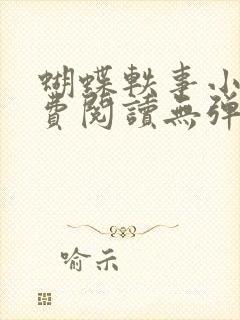 蝴蝶軼事小
費閱讀無彈
喻示